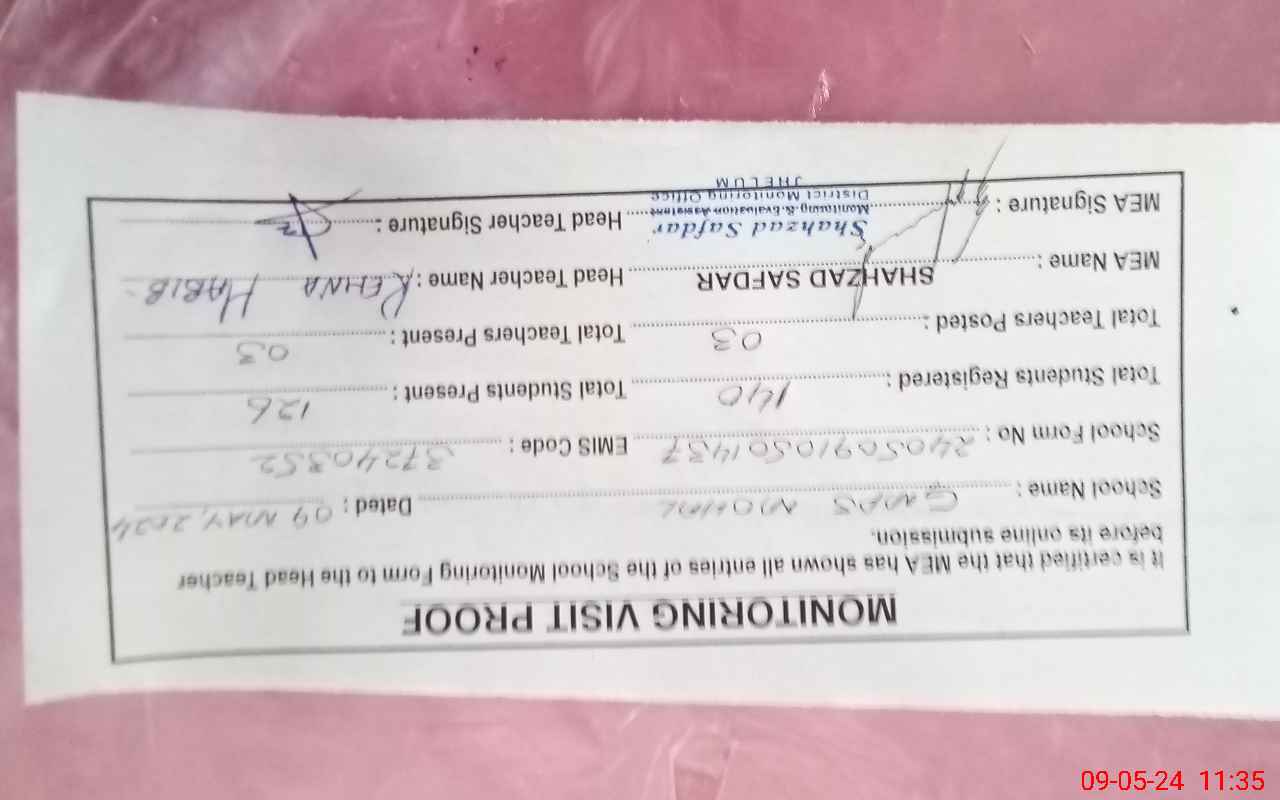 MONITORING VISIT PROOF
It is certified that the MEA has shown all entries of the School Monitoring Form to the Head Teacher
before its online submission.
School Name : GMPS NOHAL Dated : 09 MAY, 2024
School Form No : 24050910501437 EMIS Code : 37240352
Total Students Registered : 140 Total Students Present : 126
Total Teachers Posted : 03 Total Teachers Present : 03
MEA Name : SHAHZAD SAFDAR Head Teacher Name : REHNA HABIB
MEA Signature : Head Teacher Signature :
Shahzad Safdar
Monitoring & Evaluation Assistant
District Monitoring Office
JHELUM
09-05-24 11:35